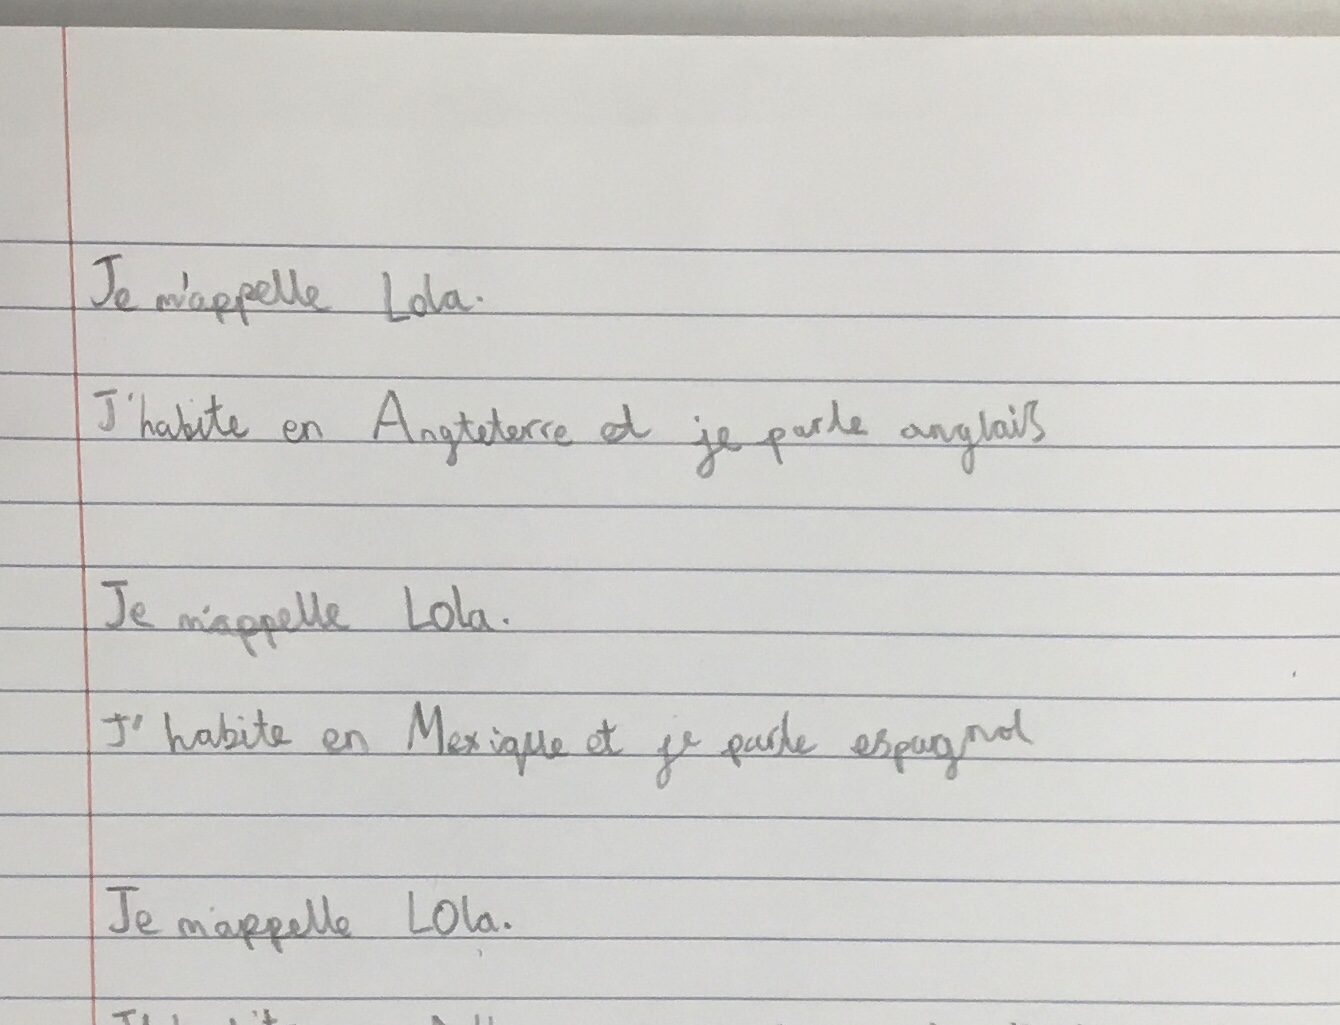 Je m'appelle Lola.
J'habite en Angteterre et je parle anglais
Je m'appelle Lola.
J'habite en Mexique et je parle espagnol
Je m'appelle LOla.